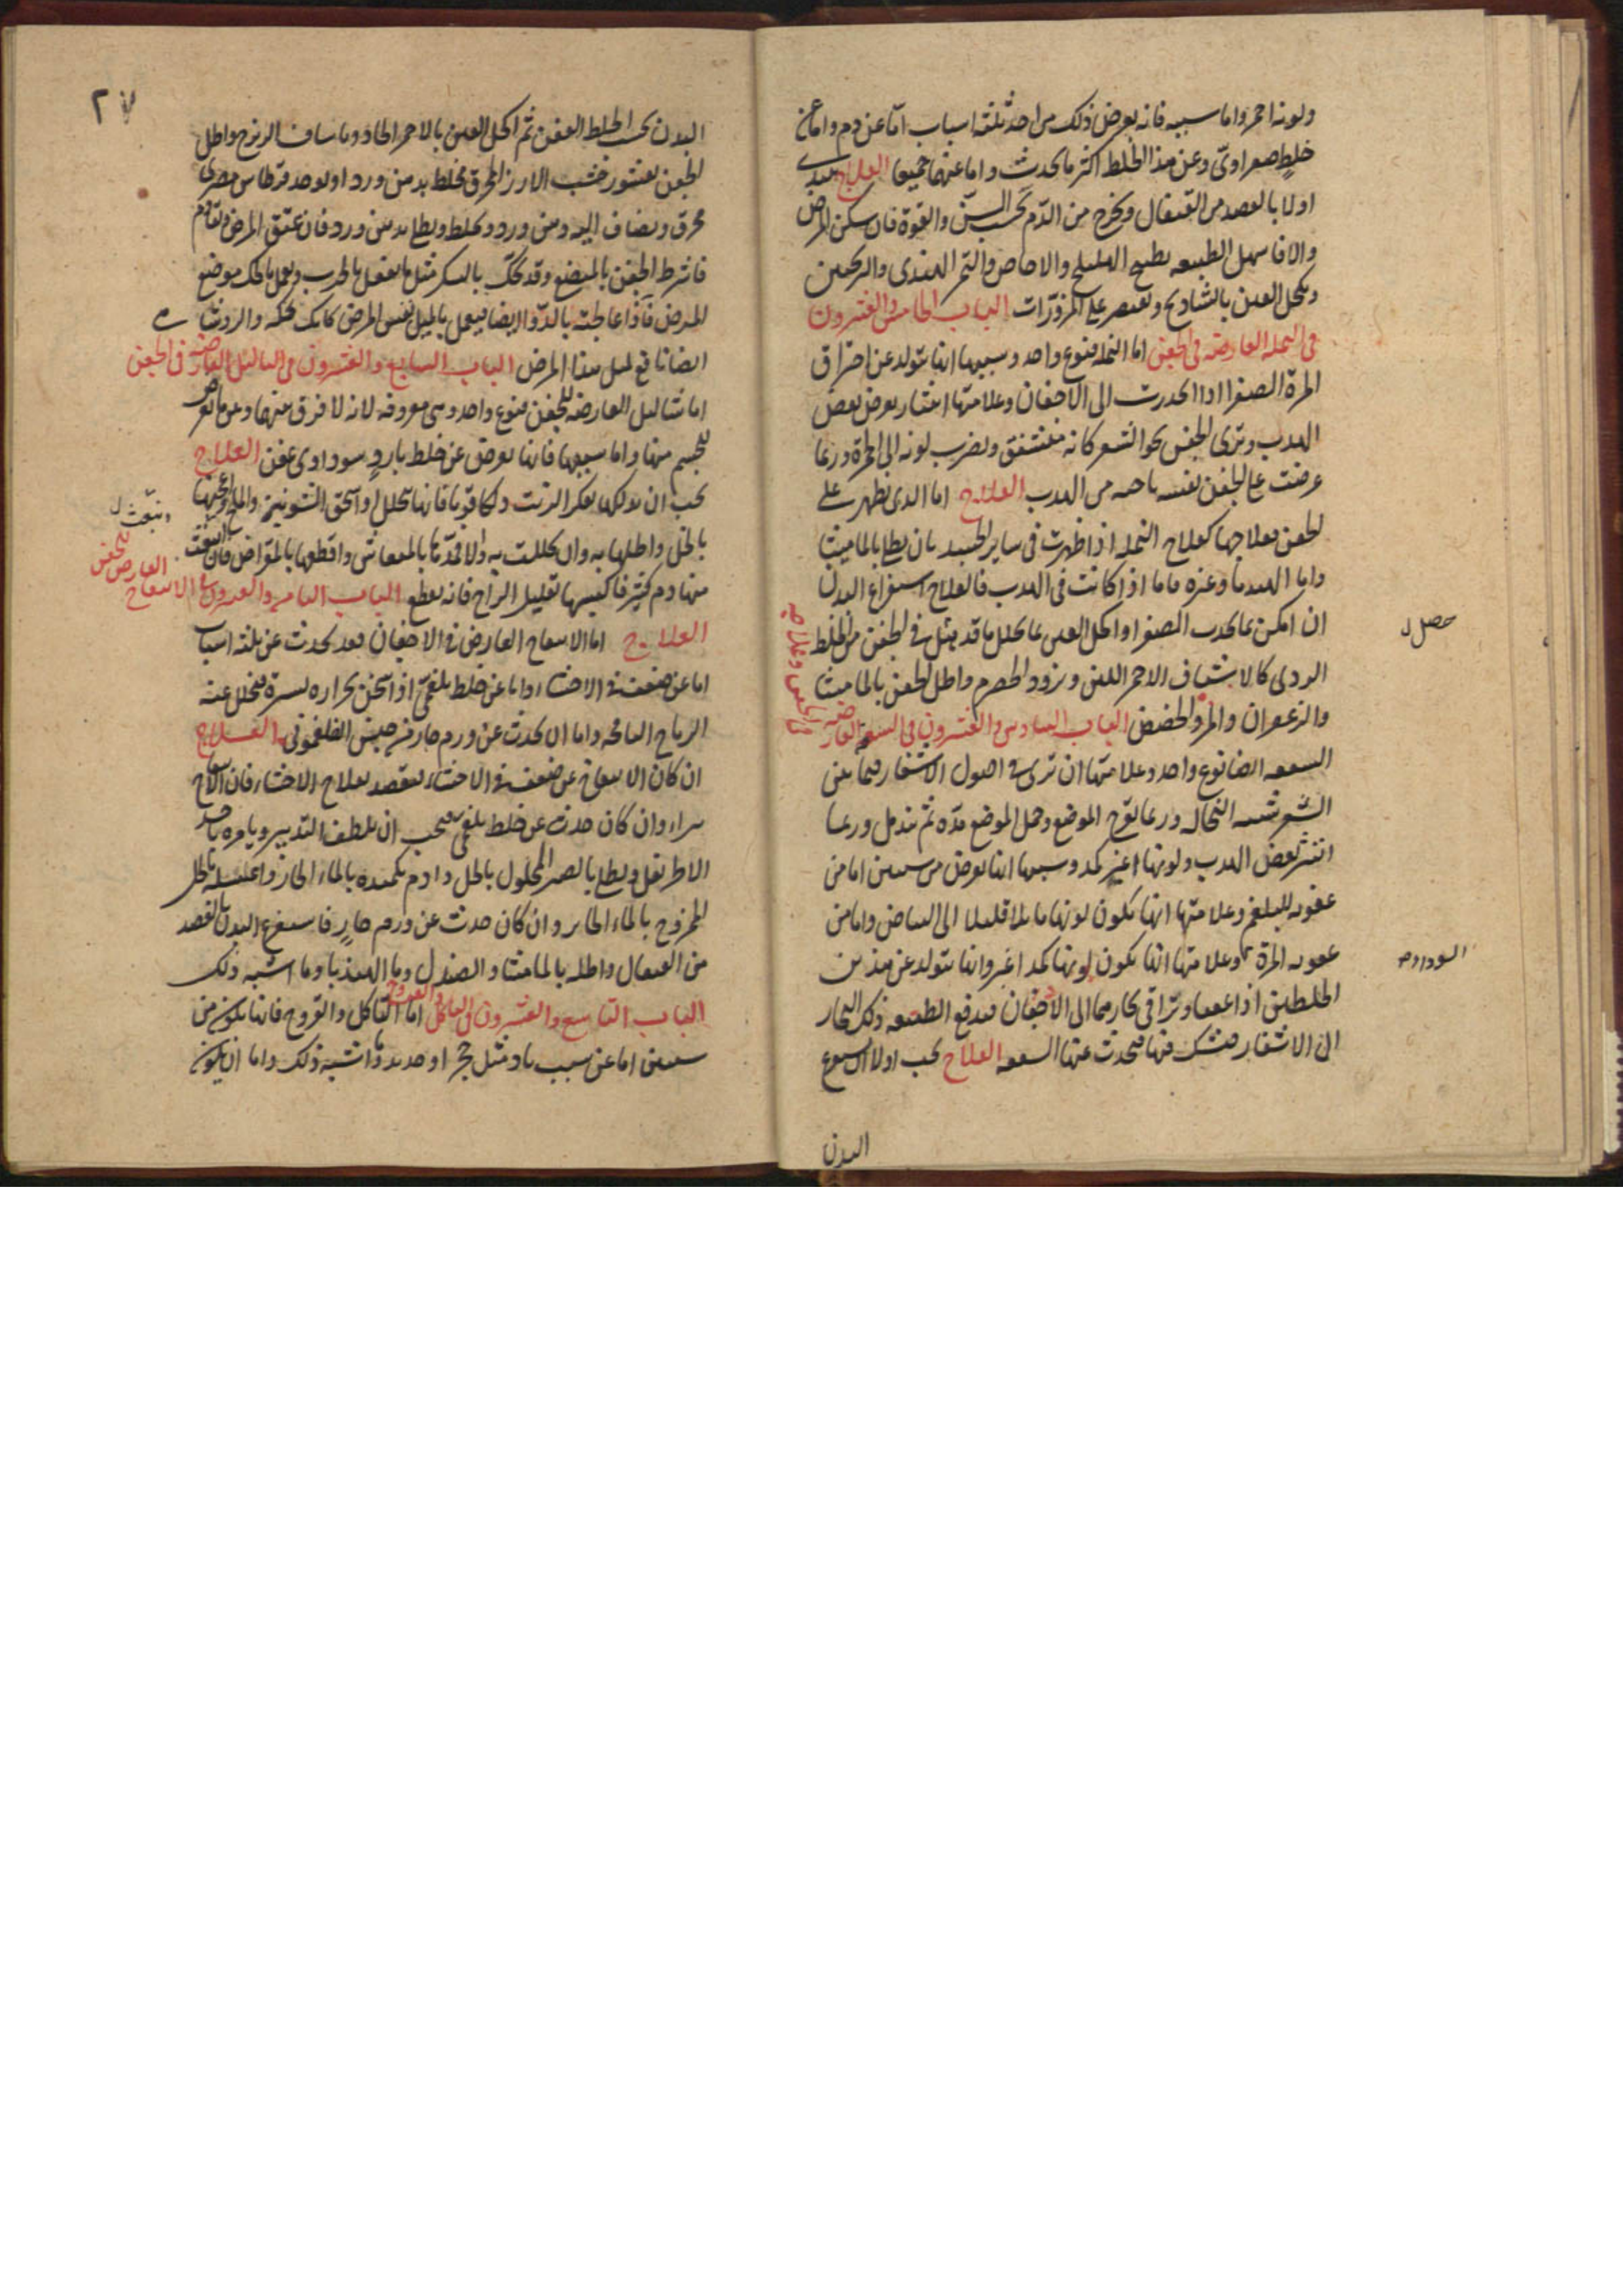 ولونه احمر واما سببه فانه يعرض ذلك من احد ثلثه اسباب اما عن دم واما عن
خلط صفراوى وعن هذا الخلط اكثر ما يحدث واما عنهما جميعا العلاج يبدى
اولا بالفصد من القيفال ويخرج من الدم بحسب السن والقوة فان سكن المرض
والا فاسهل الطبيعه بطبيخ الهليلج والاجاص والتمر الهندى والترنجبين
ويكحل العين بالشادنج ويقتصر على المزورات الباب الخامس والعشرون
فى النمله العارضه فى الجفن اما النمله فنوع واحد وسببها انها تتولد عن احتراق
المرة الصفرا اذا انحدرت الى الاجفان وعلامتها انتشار يعرض لبعض
الهدب وترى الجفن نحو الشعر كانه متشقق ويضرب لونه الى الحمرة وربما
عرضت على الجفن نفسه ناحيه من الهدب العلاج اما الذى يظهر على
الجفن فعلاجها كعلاج النمله اذا ظهرت فى ساير الجسد بان يطلى بالماميثا
وماء الهندبا وغيره فاما اذا كانت فى الهدب فالعلاج استفراغ البدن
ان امكن بما يحدر الصفرا واكحل العين بما يحلل ما قد حصل فى الجفن من الخلط
حصل
الردى كالاشياف الاحمر اللين وبرود الحصرم واطل الجفن بالماميثا
والزعفران والمر والحضض الباب السادس والعشرون فى السعفة العارضه
فى الجفن وعلاجه
السعفه ايضا نوع واحد وعلامتها ان ترى فى اصول الاشفار فيما بين
الشعر شبه النخاله وربما تقرح الموضع وحمل الموضع مدّه ثم يندمل وربما
انتثر بعض الهدب ولونها اغبر كمد وسببها انها تعرض من سببين اما من
عفونه البلغم وعلامتها انها يكون لونها مايلا قليلا الى البياض واما من
عفونه المرة وعلامتها انها يكون لونها كمد اغبر وانها تتولد عن هذين
السوداء
الخلطين اذا عفنا وتراقى بخارهما الى الاجفان فيدفع الطبيعه ذلك البخار
الى الاشفار فيتشبك فيها فيحدث عنها السعفه العلاج يجب اولا ان تستفرغ
البدن
٢٧
البدن بحسب الخلط العفن ثم اكحل العين بالاحمر الحاد وباشياف الزرنيخ واطل
الجفن بقشور خشب الارز المحرق مخلط بدهن ورد او يوخذ قرطاس مصرى
محرق ويضاف اليه دهن ورد ويخلط ويطلى بدهن ورد فان عتق المرض وتقادم
فاشرط الجفن بالمبضع وقد يحك بالسكر مثل ما يفعل بالجرب ويعمل بالحك موضع
المرض فاذا عالجته بالدوا ايضا فيعمل بالميل نفس المرض كانك تحكه والروشنايى
ايضا نافع لمثل هذا المرض الباب السابع والعشرون فى الثاليل العارضه فى الجفن
اما الثاليل العارضه للجفن فنوع واحد وهى معروفه لانه لا فرق بينها وبين ما يعرض
للجسم منها واما سببها فانها تعرض عن خلط بارد سوداوى عفن العلاج
يجب ان يدلكها بعكر الزيت دلكا قويا فانها تتحلل او اسحق الشونيز والملح واعجنهما
بالخل واطلها به وان تحللت به والا فمدّها بالمنقاش واقطعها بالمقراض فان انبعث
وتبعث
منها دم كثير فاكبسها بقليل الزاج فانه يقطع الباب الثامن والعشرون فى الانتفاخ
العارض للجفن
العلاج اما الانتفاخ العارض فى الاجفان فقد يحدث عن ثلثه اسباب
اما عن ضعف فى الاحشاء واما عن خلط بلغمى اذا سخن بحراره يسيرة تتحلل عنه
الرياح النافخه واما ان يحدث عن ورم حار من جنس الفلغمونى العلاج
ان كان الانتفاخ عن ضعف فى الاحشاء فيقصد بعلاج الاحشاء فان الانتفاخ
يبراء وان كان حدث عن خلط بلغمى فيجب ان يلطف التدبير ويامره باخذ
الاطريفل ويطلى بالصبر المحلول بالخل وادم تكميده بالماء الحار واغسله بالخل
الممزوج بالماء الحار وان كان حدث عن ورم حار فاستفرغ البدن بالفصد
من القيفال واطله بالماميثا والصندل وماء الهندبا وما اشبه ذلك
الباب التاسع والعشرون فى التاكل والقروح اما التاكل والقروح فانها يكون من
سببين اما عن سبب باد مثل حجر او حديد وما اشبه ذلك واما ان يكون